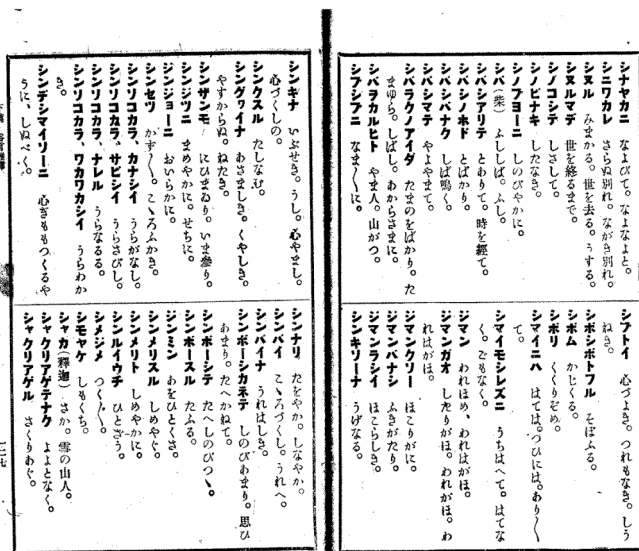 シナヤカニ なよびて。なよなよと。
シニワカレ さらぬ別れ。ながき別れ。
シヌル みまかる。世を去る。うする。
シヌルマデ 世を終るまで。
シノコシテ しさして。
シノビナキ したなき。
シノブヨーニ しのびやかに。
シバ(柴) ふししば。ふし。
シバシアリテ とありて。時を經て。
シバシノホド とばかり。
シバシバナク しば鳴く。
シバシマテ やよやまて。
シバラクノアイダ たまのをばかり。た
まゆら。しばし。あからさまに。
シバヲカルヒト やま人。山がつ。
シブシブニ なま〳〵に。
シブトイ 心づよき。つれもなき。しう
ねき。
シボシボトフル そぼふる。
シボム かじくる。
シボリ くくりぞめ。
シマイニハ はては。つひには。あり〳〵
て。
シマイモシレズニ うちはへて。はてな
く。ごもなく。
ジマン われほめ、われはがほ。
ジマンガオ したりがほ。われがほ。わ
れはがほ。
ジマンクソー ほこりがに。
ジマンバナシ ふきがたり。
ジマンラシイ ほこらしき。
シンキソーナ うげなる。
シンキナ いぶせき。うし。心やまし。
心づくしの。
シンクスル たしなむ。
シングワイナ あさましき。くやしき。
やすからぬ。ねたき。
シンザンモ にひまゐり。いま參り。
シンジツニ まめやかに。せちに。
シンジョーニ おいらかに。
シンセツ かず〳〵。こゝろふかき。
シンソコカラ、カナシイ うらがなし。
シンソコカラ、サビシイ うらさびし。
シンソコカラ、ナレル うらなるる。
シンソコカラ、ワカワカシイ うらわか
き。
シンデシマイソーニ 心ぎももつくるや
うに、しぬべく。
シンナリ たをやか。しなやか。
シンパイ こゝろづくし。うれへ。
シンパイナ うれはしき。
シンボーシカネテ しのびあまり。思ひ
あまり。たへかねて。
シンボーシテ たへしのびつゝ。
シンボースル たふる。
ジンミン あをひとくさ。
シンメリスル しめやぐ。
シンメリト しめやかに。
シンルイウチ ひとぞう。
シメジメ つく〴〵。
シモヤケ しもくち。
シャカ(釋迦) さか。雪の山人。
シャクリアゲテナク よよとなく。
シャクリアゲル さくりあぐ。